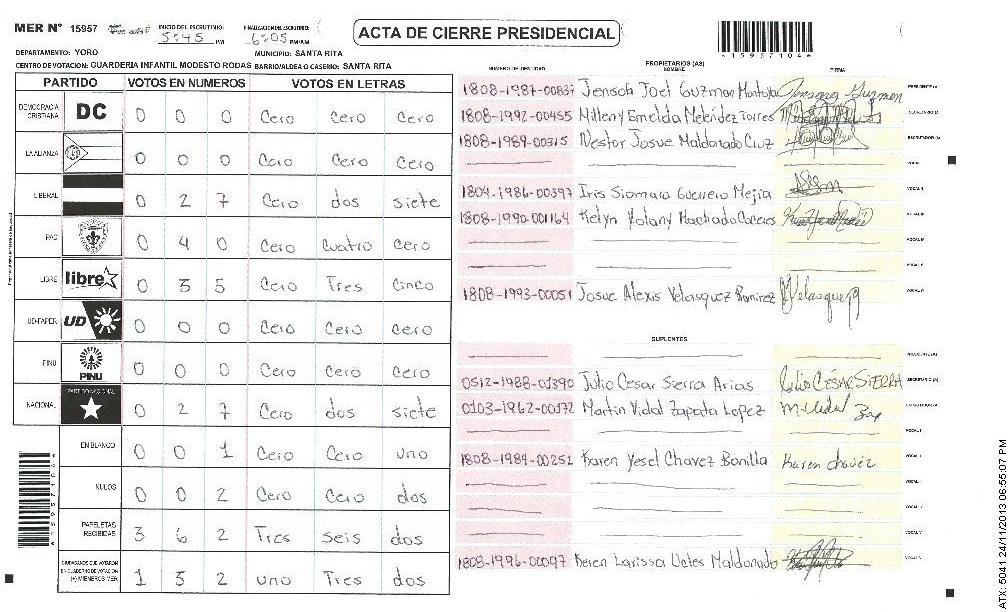 MER N° 15957 INICIO DEL ESCRUTINIO: 5:45 PM FINALIZACION DEL ESCRUTINIO: 6:05 PM/AM
ACTA DE CIERRE PRESIDENCIAL
*15957104*
DEPARTAMENTO: YORO MUNICIPIO: SANTA RITA
CENTRO DE VOTACION: GUARDERIA INFANTIL MODESTO RODAS BARRIO/ALDEA O CASERIO: SANTA RITA
PARTIDO VOTOS EN NUMEROS VOTOS EN LETRAS
DEMOCRACIA CRISTIANA DC 0 0 0 Cero Cero Cero
LA ALIANZA 0 0 0 Cero Cero Cero
LIBERAL 0 2 7 Cero dos siete
PAC 0 4 0 Cero cuatro cero
LIBRE libre 0 3 5 Cero Tres Cinco
UD-FAPER UD 0 0 0 Cero Cero Cero
PINU PINU 0 0 0 Cero Cero Cero
NACIONAL PARTIDO NACIONAL 0 2 7 Cero dos siete
EN BLANCO 0 0 1 Cero Cero uno
NULOS 0 0 2 Cero Cero dos
PAPELETAS RECIBIDAS 3 6 2 Tres seis dos
CIUDADANOS QUE VOTARON EN CUADERNO DE VOTACION (+) MIEMBROS MER 1 3 2 uno Tres dos
*15957104*
NUMERO DE IDENTIDAD PROPIETARIOS (AS) NOMBRE FIRMA
1808-1987-00837 Jensoh Joel Guzman Montoya PRESIDENTE (A)
1808-1992-00455 Milleny Emelda Melendez Torres SECRETARIO (A)
1808-1989-00315 Nestor Josue Maldonado Cruz ESCRUTADOR (A)
VOCAL I
1804-1986-00397 Iris Siomara Guerrero Mejia VOCAL II
1808-1990-001164 Kelyn Yolany Machado Caceres VOCAL III
VOCAL IV
VOCAL V
1808-1993-00051 Josue Alexis Velasquez Ramirez Velasquez VOCAL VI
SUPLENTES
PRESIDENTE (A)
0512-1988-01390 Julio Cesar Sierra Arias Julio CÉSAR SIERRA SECRETARIO (A)
0103-1962-00172 Martin Vidal Zapata Lopez M. Vidal Zap ESCRUTADOR (A)
VOCAL I
1808-1984-00252 Karen Yesel Chavez Bonilla Karen chavez VOCAL II
VOCAL III
VOCAL IV
VOCAL V
1808-1996-00097 Keren Larissa Maldonado VOCAL VI
ATX: 5041 24/11/2013 06:55:07 PM